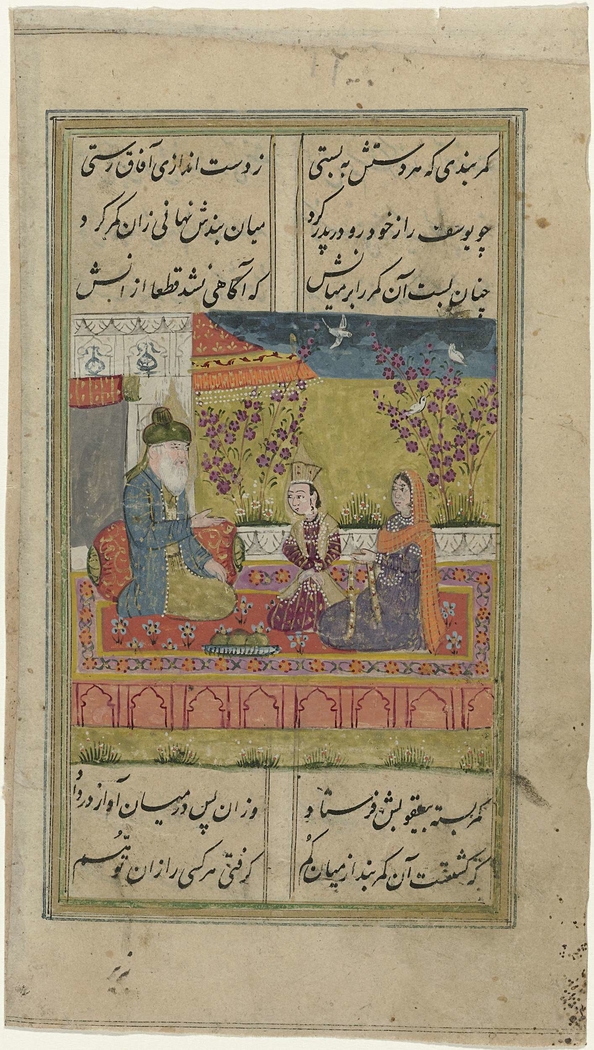 کمربندی که هر دستش به بستی ز دست اندازی آفاق رستی
چو یوسف را ز خود رو در پدر کرد میان بندش نهانی زان کمر کرد
چنان بست آن کمر را بر میانش که آگاهی نشد قطعا ازانش
کمر بسته بیعقوبش فرستاد وزان پس در میان آواز در داد
که گشتست آن کمربند از میان گم گرفتی هر کسی را زان توهم
بزیر